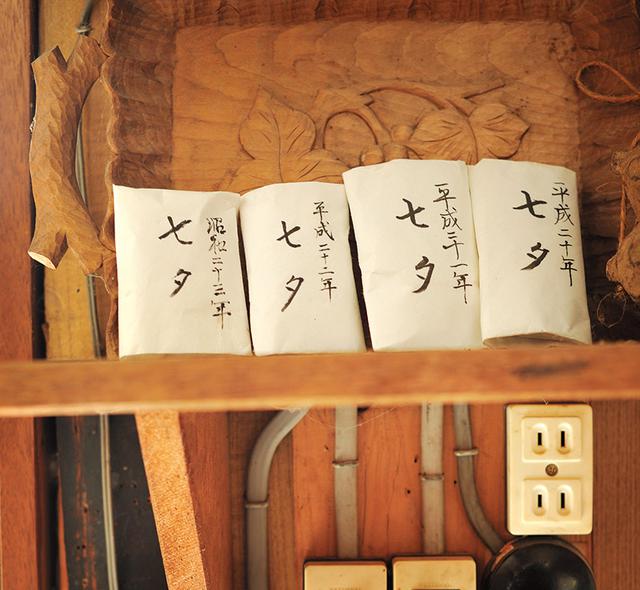 平成二十年
七夕
平成二十一年
七夕
平成二十二年
七夕
昭和二十三年
七夕